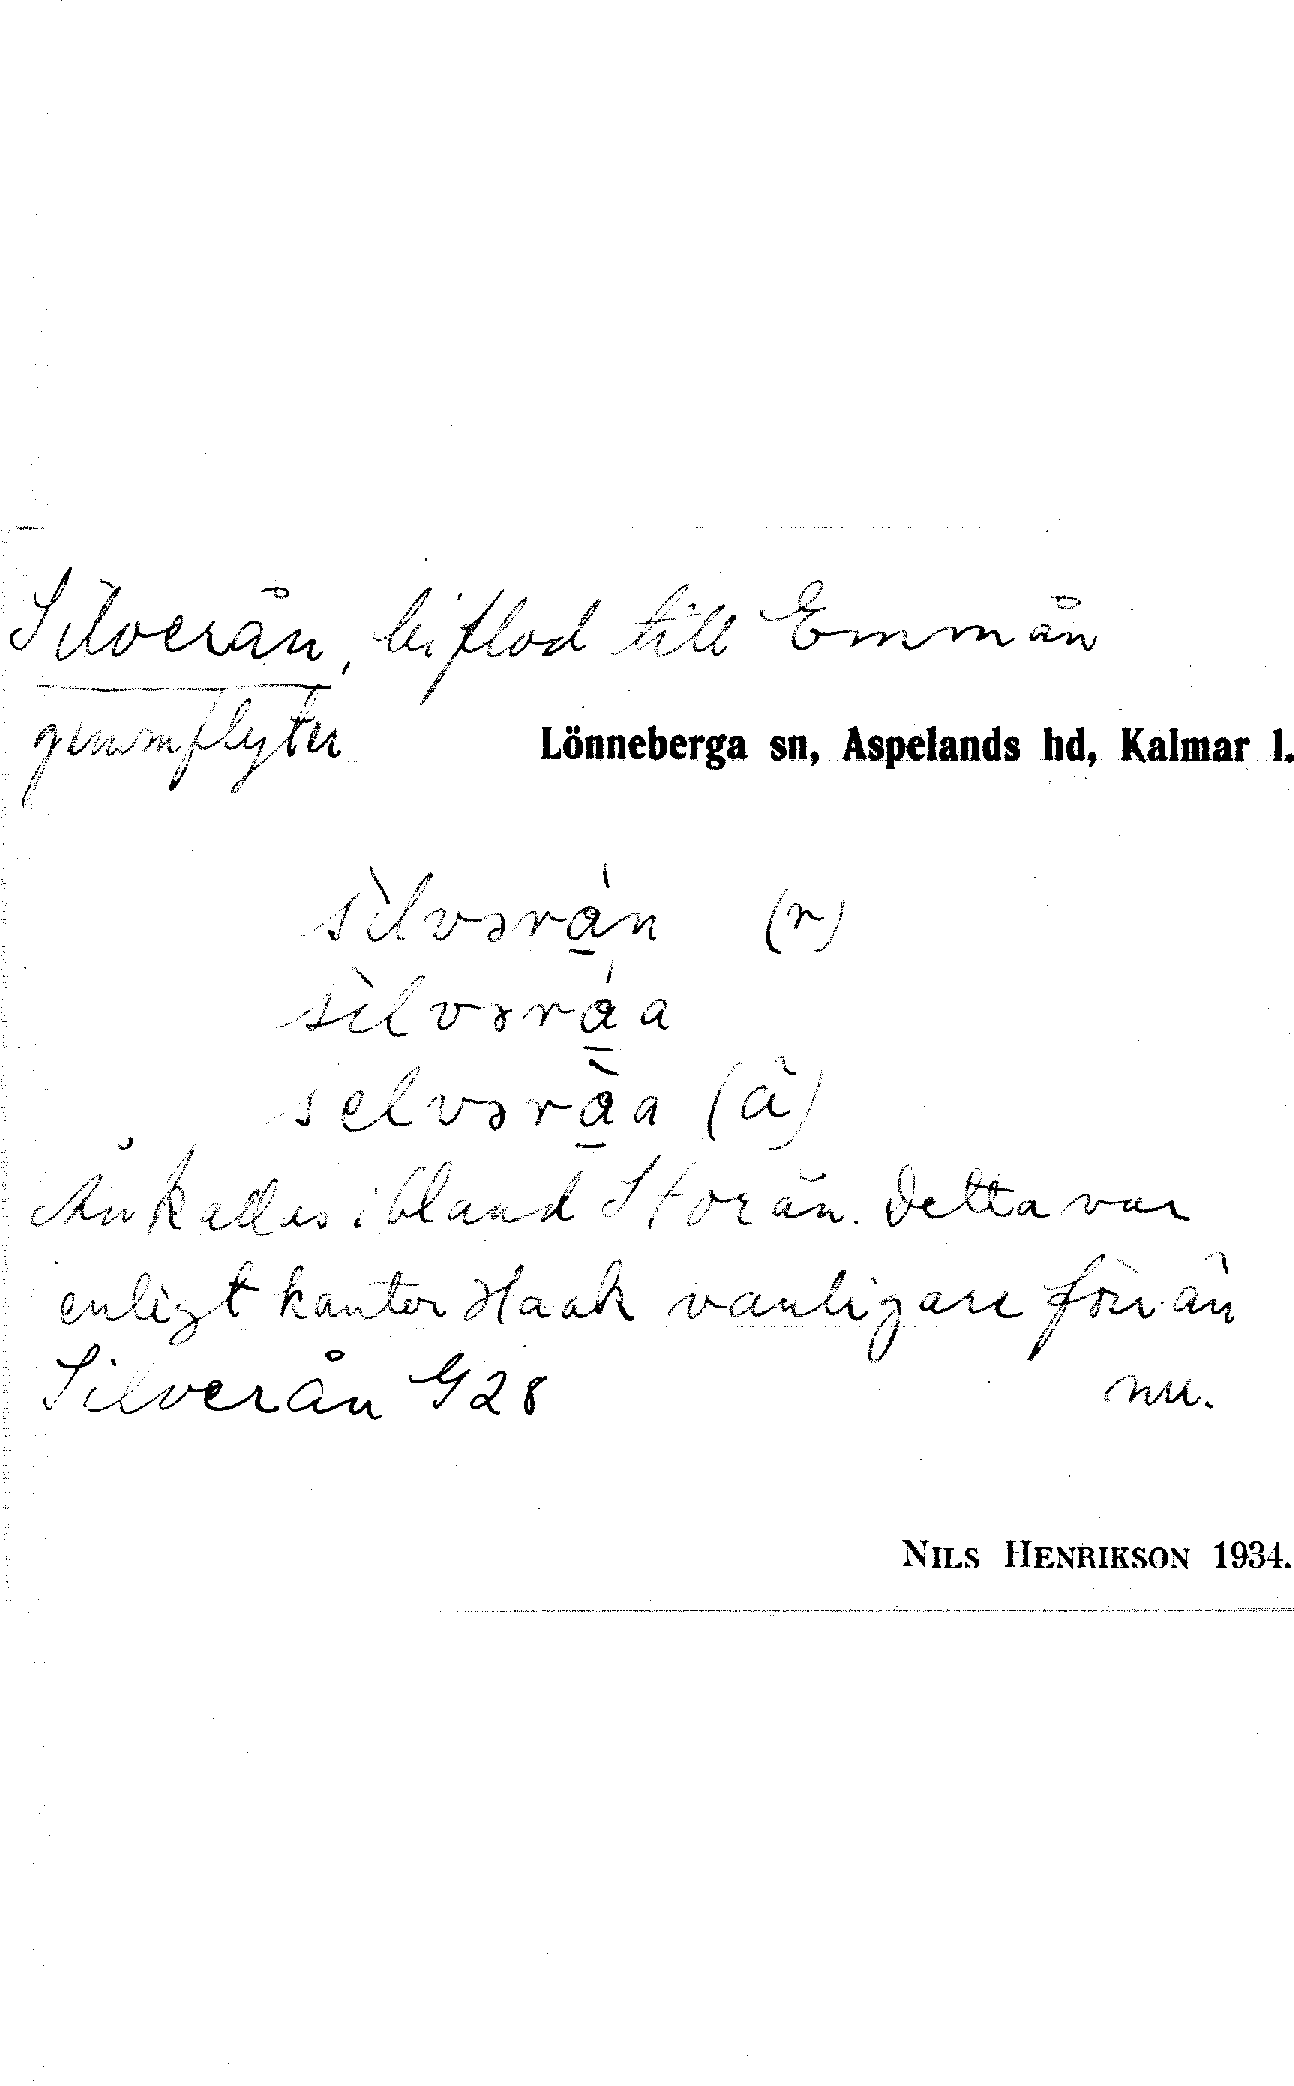 Silverån, biflod till Emmån
genomflyter Lönneberga sn, Aspelands hd, Kalmar l.
sìlvərån (r)
sìlvəråa
selvəråa (å)
Ån kallas ibland Storån. Detta var
enligt kantor Haak vanligare förr än
Silverån G28 nu.
NILS HENRIKSON 1934.